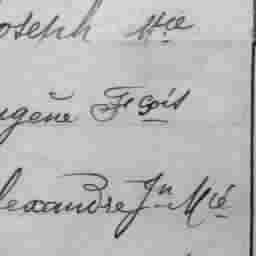 Joseph Mie
Eugène Fçois
Alexandre Jn Mie